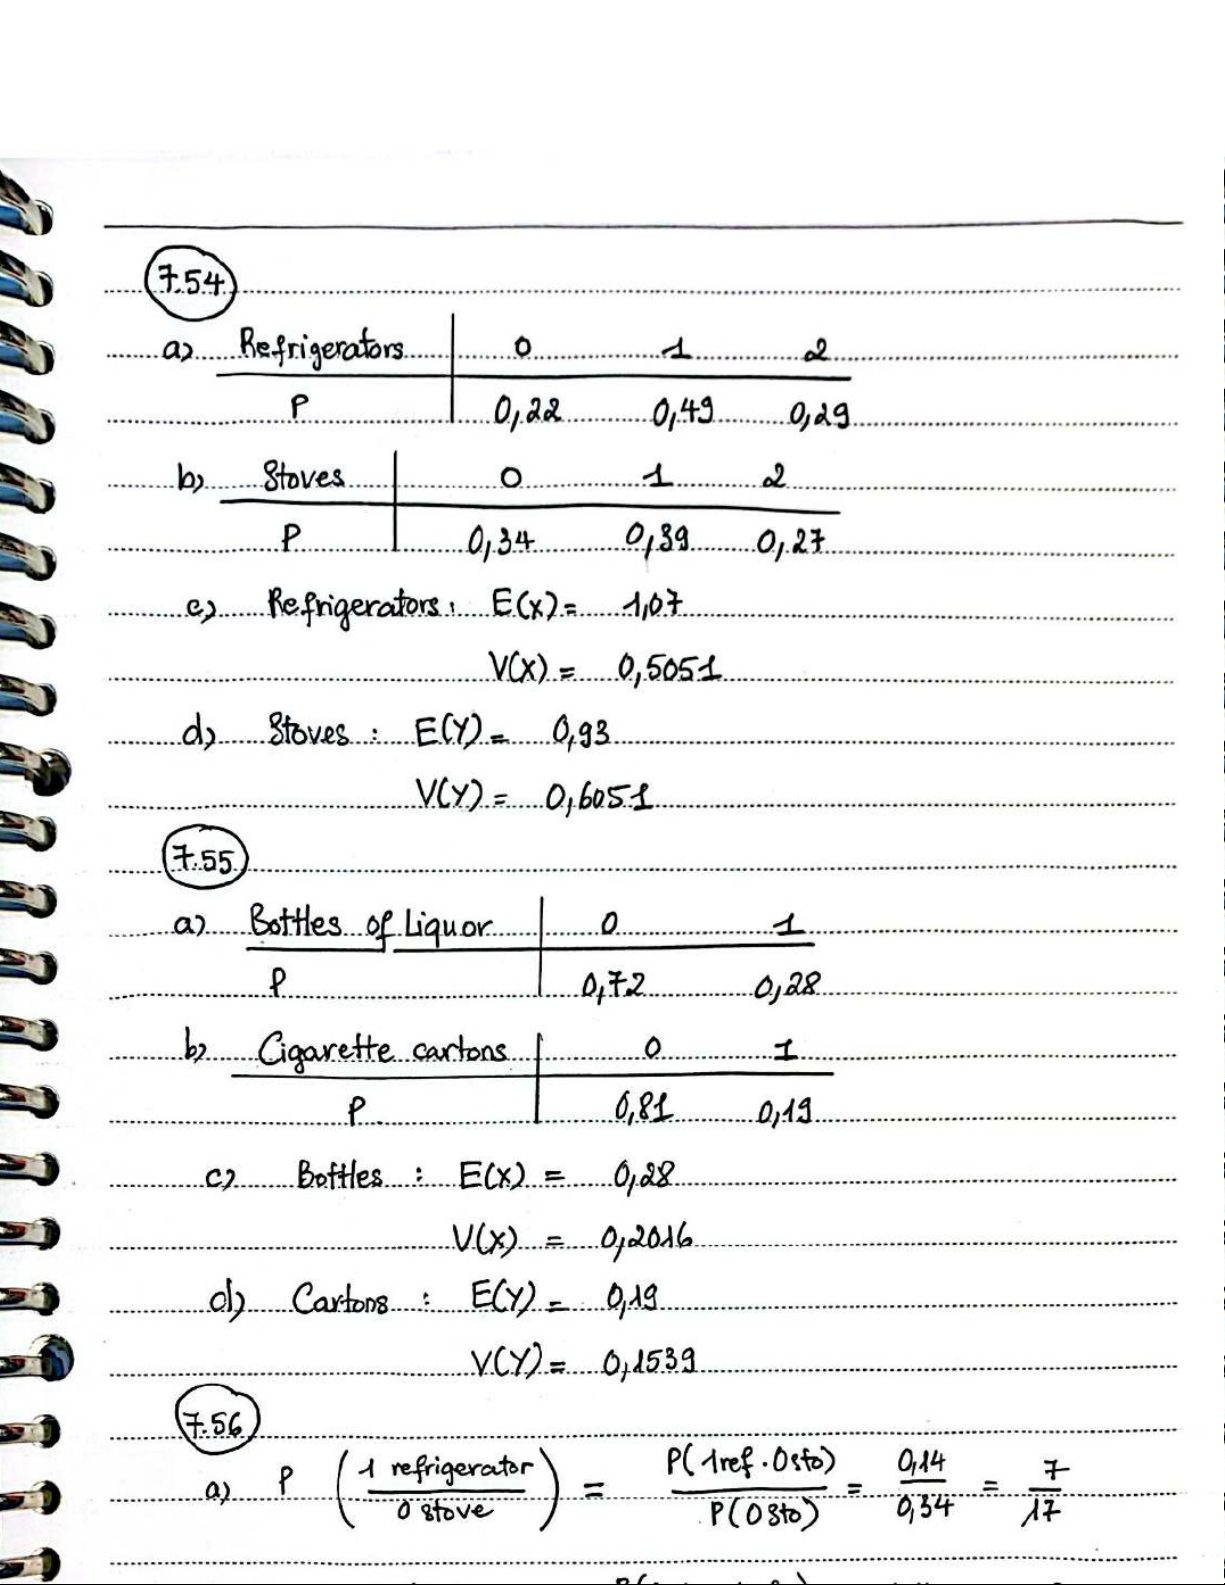 7.54
a) Refrigerators 0 1 2
P 0,22 0,49 0,29
b) Stoves 0 1 2
P 0,34 0,39 0,27
c) Refrigerators: E(X)= 1,07
V(X) = 0,5051
d) Stoves : E(Y) = 0,93
V(Y) = 0,6051
7.55
a) Bottles of Liquor 0 1
P 0,72 0,28
b) Cigarette cartons 0 1
P 0,81 0,19
c) Bottles : E(X) = 0,28
V(X) = 0,2016
d) Cartons : E(Y) = 0,19
V(Y) = 0,1539
7.56
a) P (1 refrigerator / 0 stove) = P(1ref . 0sto) / P(0sto) = 0,14 / 0,34 = 7 / 17